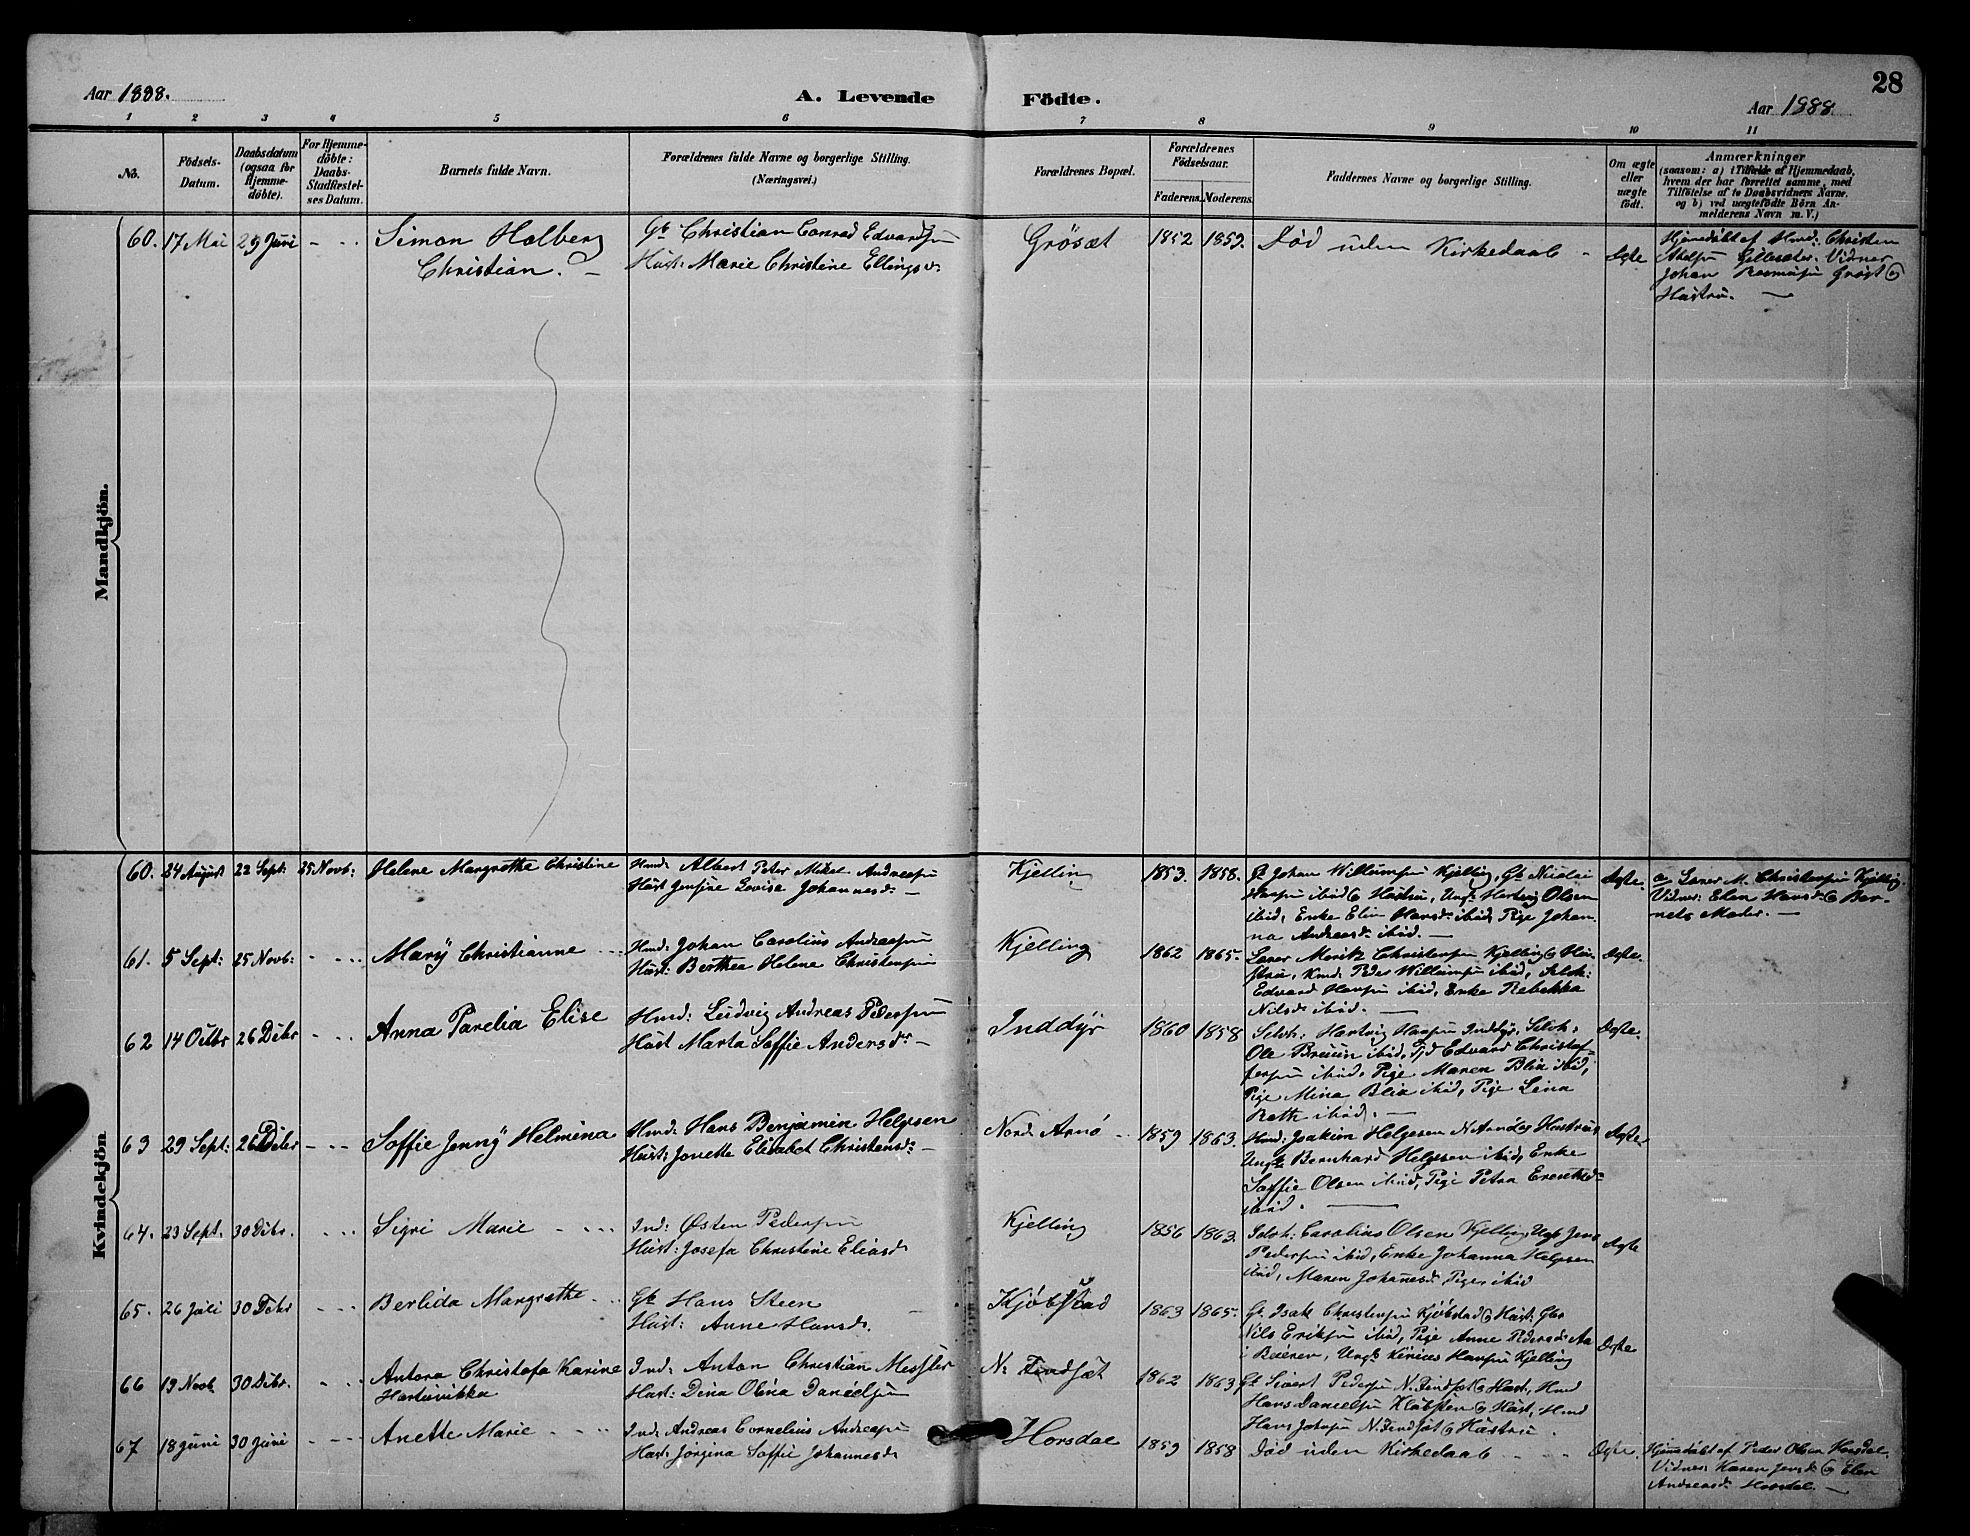 28
Aar 1888.
A. Levende Födte.
Aar 1888
1 2 3 4 5 6 7 8 9 10 11
No.
Födsels-
Datum.
Daabsdatum
(ogsaa for
Hjemme-
döbte).
For Hjemme-
döbte:
Daabs-
Stadfæstel-
ses Datum.
Barnets fulde Navn.
Forældrenes fulde Navne og borgerlige Stilling.
(Næringsvei.)
Forældrenes Bopæl.
Forældrenes
Födselsaar.
Faderens. Moderens.
Faddernes Navne og borgerlige Stilling.
Om ægte
eller
uægte
födt.
Anmærkninger
(saasom: a) i Tilfælde af Hjemmedaab,
hvem der har forrettet samme, med
Tilföielse af to Daabsvidners Navne.
og b) ved uægtefödte Börn An-
melderens Navn m. V.)
Mandkjön.
60. 17 Mai 29 Juni - - -
Simon Holberg
Christian. -
Gb Christian Conrad Edvardsen
Hust: Marie Christine Ellingsd:
Grösæt
1852 1859.
Död uden Kirkedaab -
Ægte
Hjemedöbt af Hmd: Christen
Gillesæter. Vidner
Johan Rasmusen Gröset og
Hustru. -
Kvindekjön
60. 24 August 22 Sept: 25 Novb:
Helene Margrethe Christine
Hmd: Albert Peter Mikel Andreasen
Hust Jensine Lovise Johannesd: -
Kjelling
1853. 1858.
Gb Johan Willumsen Kjelling, Gb Nicolai
Hansen ibid & Hustru, Ungk Hartvig Olsen
ibid, Enke Elen Hansd: ibid, Pige Johan-
na Andreasd: ibid. -
Ægte.
a Lærer M. Christensen Kjelling.
Vidner: Elen Hansd: & Bar-
nets Moder. -
61. 5 Sept: 25 Novb: - - -
Marÿ Christianne - -
Hmd: Johan Carolius Andreasen
Hust: Berthea Helene Christensen
Kjelling
1862 1865.
Lærer Morits Christensen Kjelling & Hu-
stru, Kmd: Peder Willumsen ibid, Selvh:
Edvard Hansen ibid, Enke Rebekka
Nilsd: ibid. -
Ægte.
62 14 Octbr 26 Dcbr - - -
Anna Parelia Elise
Hmd: Ludvig Andreas Pedersen
Hust Marta Soffie Andersdr -
Inddyr
1860 1858
Selvh: Hartvig Hansen Inddyr, Selvh:
Ole Bruun ibid, Tjd Edvard Christof-
fersen ibid, Pige Maren Blix ibid,
Pige Mina Blix ibid, Pige Lina
Rath ibid. -
Ægte.
63 29 Sept: 26 Dcbr - - -
Soffie Jennÿ Helmina
Hmd: Hans Benjamin Helgesen
Hust: Jonette Elisabet Christensd: -
Nord Arnö -
1859 1863.
Hmd: Joakim Helgesen N. Arnö og Hustru,
Ungk: Bernhard Helgesen ibid, Enke
Soffie Olsen ibid, Pige Petra
ibid. -
Ægte
64. 23 Sept. 30 Dcbr. - - -
Sigri Marie - - - -
Ind: Østen Pedersen
Hust: Josefa Christine Eliasd:
Kjelling
1856 1863.
Selvh: Carolius Olsen Kjelling, Ungk Jens
Pedersen ibid, Enke Johanna Helgesen
ibid, Maren Johanesd: Pige ibid
Ægte
65. 26 Juli 30 - - -
Berlida Margrethe - -
Gb Hans Steen
Hust: Anne Hansd:
Kjöbstad
1863 1865.
Gb Isak Christensen Kjöbstad & Hust: Gbr
Nils Eriksen ibid, Pige Anne Pedersd: Aa
i Beieren, Ungk Hansen Kjelling
Ægte
66 19 Novb 30 Dcbr. - - -
Antora Christofa Karine
Hartvikka
Ind: Anton Christian
Hust: Dina Olina Danielsen
N. Findsæt
1862 1863
Gb Sivert Pedersen N. Findsæt & Hust, Hmd
Hans Danielsen & Hust, Hmd
Hans Johnsen N. Findsæt & Hustru.
67 18 Juni 30 Juni - - -
Anette Marie - - - -
Ind: Andreas Cornelius Andreasen
Hust: Jörgina Soffie Johannesd:
Horsdal
1859 1858
Död uden Kirkedaab - - -
Ægte.
Hjemedöbt af Peder Olsen Horsdal.
Vidner Karen Jensd: & Elen
Andreasd: Horsdal. -